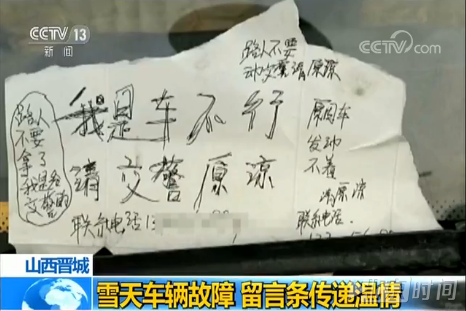 CCTV 13
新闻
CCTV.com
央视网
路人不要
动交警请原谅
路人
不要
拿了
我是给
交警的
我是车不行
请交警原凉
联系电话 13
原因车
发动
不着
请原凉
联系电话
山西晋城
雪天车辆故障 留言条传递温情
时间